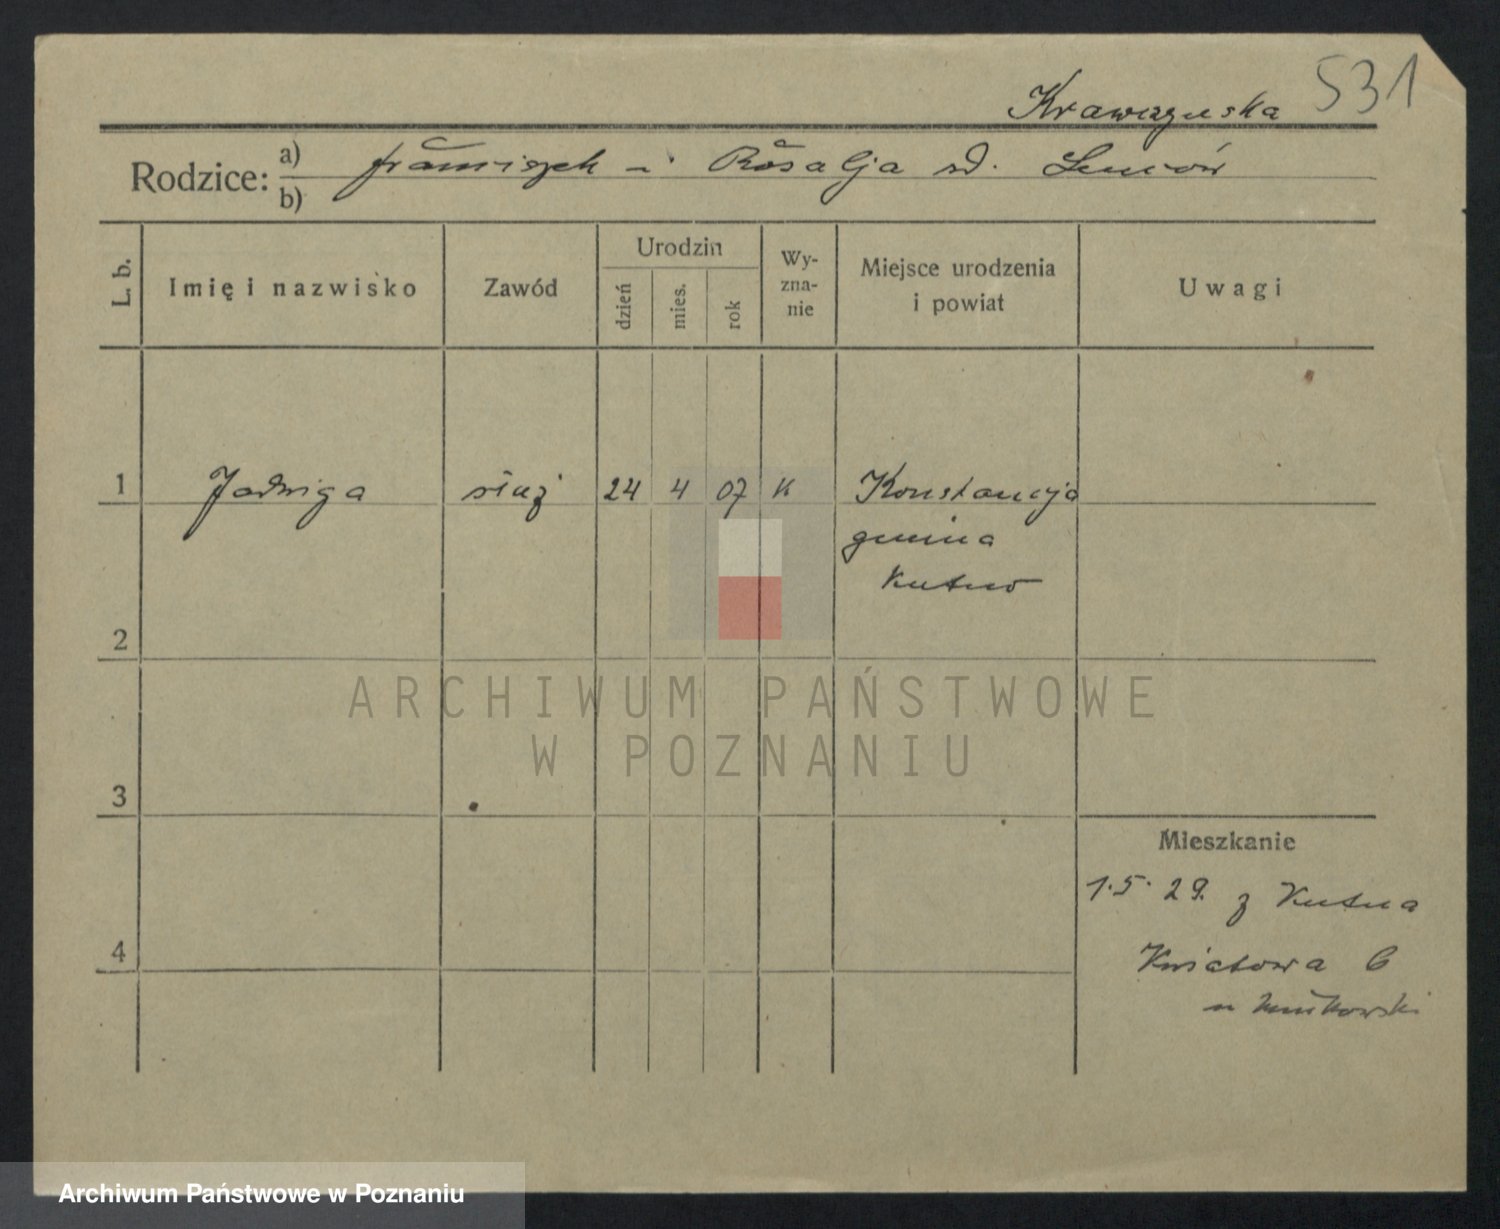 Krawczynska 531
Rodzice: a) franciszek i Rosalja zd.
b)
L. b.
Imię i nazwisko
Zawód
Urodzin
dzień
mies.
rok
Wy-
zna-
nie
Miejsce urodzenia
i powiat
Uwagi
1 Jadwiga służ 24 4 07 K Konstancja
gmina
Kutno
2
ARCHIWUM PAŃSTWOWE
W POZNANIU
3
Mieszkanie
1.5.29. z Kutna
4 Kwiatowa 6
Archiwum Państwowe w Poznaniu